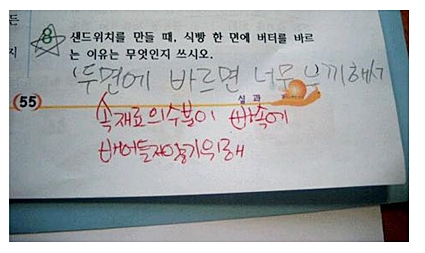 든
지
8 샌드위치를 만들 때, 식빵 한 면에 버터를 바르
는 이유는 무엇인지 쓰시오.
두면에 바르면 너무 느끼해서
(55)
실 과
속재료의수분이 빵속에
배어들지않기위해